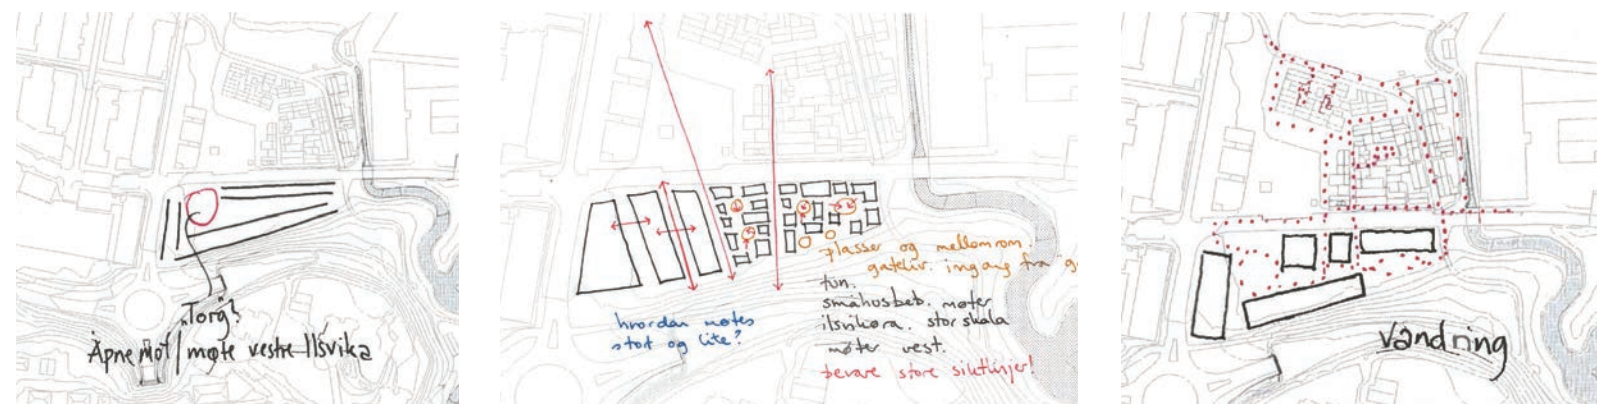 "Torg?
Åpne mot / møte vestre Ilsvika
plasser og mellomrom.
gateliv. ingang fra
tun.
småhusbeb. møter
ilsvikøra. storskala
møter vest.
bevare store siktlinjer!
hvordan møtes
stort og lite?
Vandring